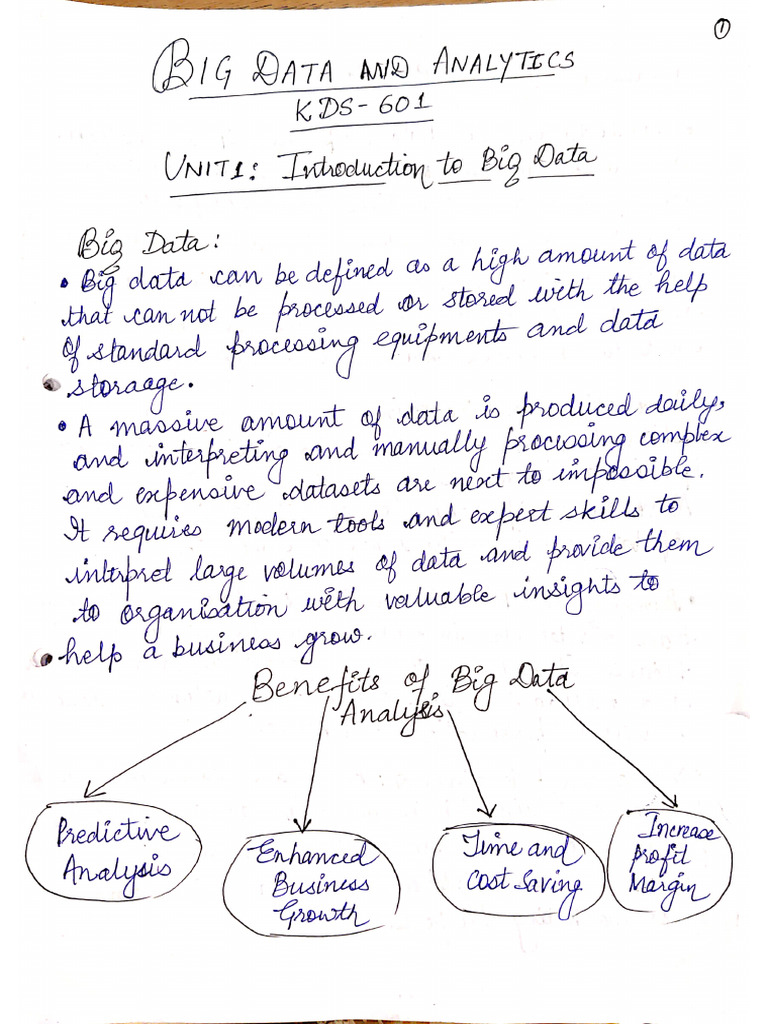 1
BIG DATA AND ANALYTICS
KDS-601
UNIT1: Introduction to Big Data
Big Data:
• Big data can be defined as a high amount of data
that can not be processed or stored with the help
of standard processing equipments and data
storaage.
• A massive amount of data is produced daily,
and interpreting and manually processing complex
and expensive datasets are next to impossible.
It requires modern tools and expert skills to
interpret large volumes of data and provide them
to organisation with valuable insights to
help a business grow.
Benefits of Big Data
Analysis
Predictive
Analysis
Enhanced
Business
Growth
Time and
Cost Saving
Increase
Profit
Margin